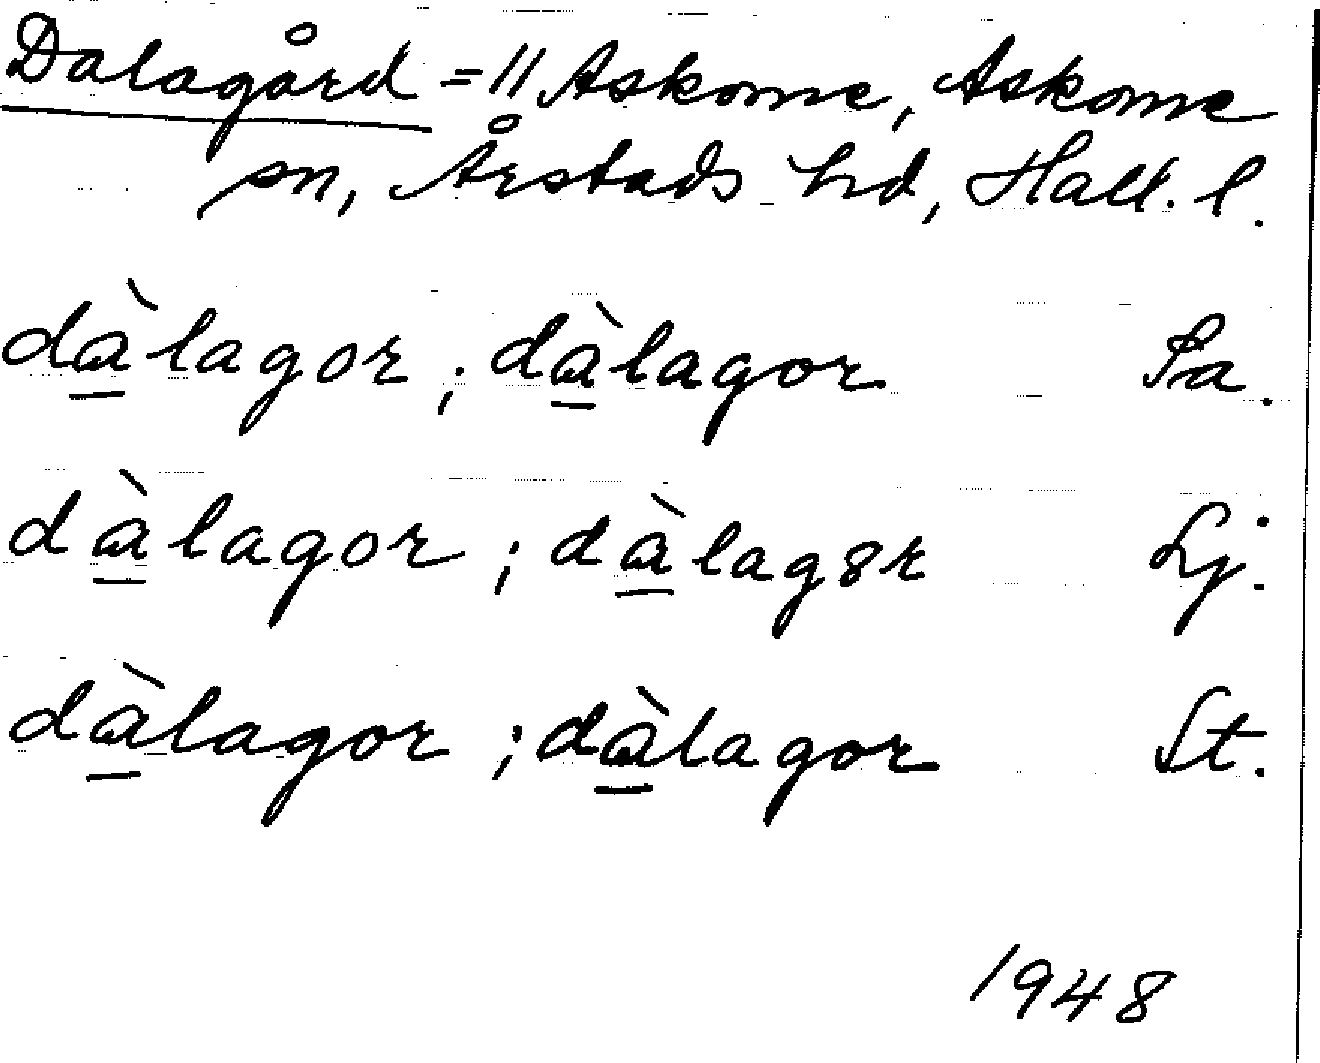 Dalagård = 11 Askome, Askome
sn, Årstads hd, Hall. l.
dà̱lagor ; dà̱lagor Sa.
dà̱lagor ; dà̱lag8r Lj.
dà̱lagor ; dà̱lagor St.
1948